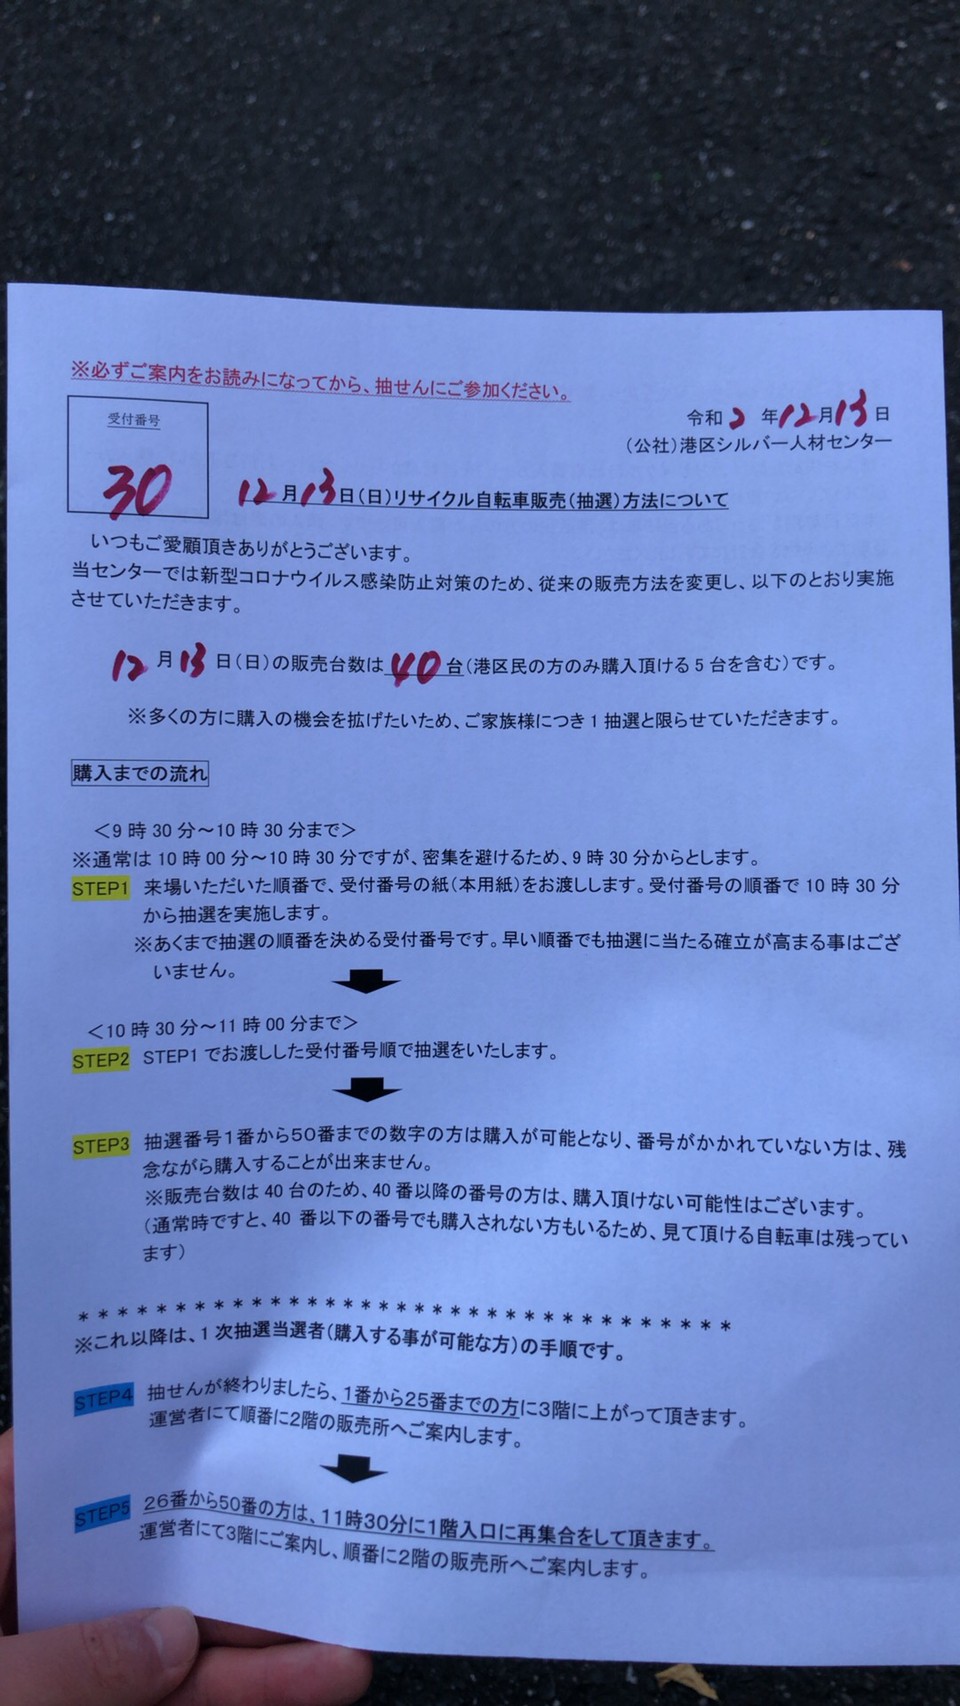 ※必ずご案内をお読みになってから、抽せんにご参加ください。
受付番号
30
令和 2 年12月13日
（公社）港区シルバー人材センター
12月13日（日）リサイクル自転車販売（抽選）方法について
いつもご愛顧頂きありがとうございます。
当センターでは新型コロナウイルス感染防止対策のため、従来の販売方法を変更し、以下のとおり実施
させていただきます。
12月13日（日）の販売台数は 40 台（港区民の方のみ購入頂ける5台を含む）です。
※多くの方に購入の機会を拡げたいため、ご家族様につき1抽選と限らせていただきます。
購入までの流れ
＜9時30分～10時30分まで＞
※通常は10時00分～10時30分ですが、密集を避けるため、9時30分からとします。
STEP1 来場いただいた順番で、受付番号の紙（本用紙）をお渡しします。受付番号の順番で10時30分
から抽選を実施します。
※あくまで抽選の順番を決める受付番号です。早い順番でも抽選に当たる確立が高まる事はござ
いません。
＜10時30分～11時00分まで＞
STEP2 STEP1でお渡しした受付番号順で抽選をいたします。
STEP3 抽選番号1番から50番までの数字の方は購入が可能となり、番号がかかれていない方は、残
念ながら購入することが出来ません。
※販売台数は40台のため、40番以降の番号の方は、購入頂けない可能性はございます。
（通常時ですと、40番以下の番号でも購入されない方もいるため、見て頂ける自転車は残ってい
ます）
＊＊＊＊＊＊＊＊＊＊＊＊＊＊＊＊＊＊＊＊＊＊＊＊＊＊＊＊＊＊＊＊＊＊
※これ以降は、1次抽選当選者（購入する事が可能な方）の手順です。
STEP4 抽せんが終わりましたら、1番から25番までの方に3階に上がって頂きます。
運営者にて順番に2階の販売所へご案内します。
STEP5 26番から50番の方は、11時30分に1階入口に再集合をして頂きます。
運営者にて3階にご案内し、順番に2階の販売所へご案内します。